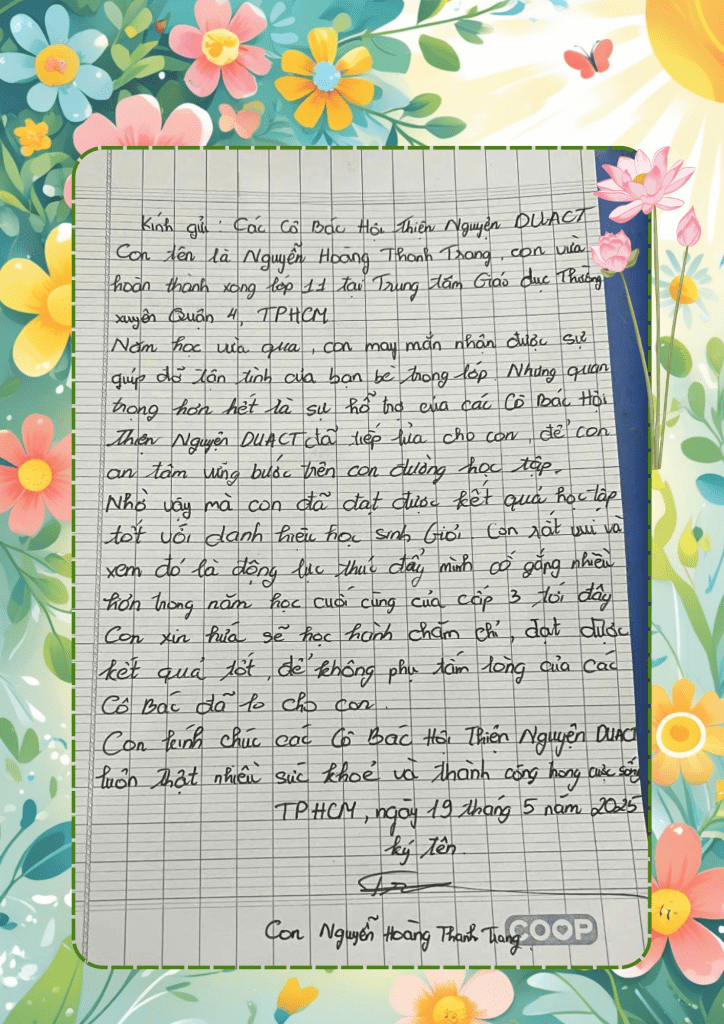 Kính gửi : Các Cô Bác Hội Thiện Nguyện DUACT
Con tên là Nguyễn Hoàng Thanh Trang, con vừa
hoàn thành xong lớp 11 tại Trung tâm Giáo dục Thường
xuyên Quận 4, TPHCM
Năm học vừa qua, con may mắn nhận được sự
giúp đỡ tận tình của bạn bè trong lớp. Nhưng quan
trọng hơn hết là sự hỗ trợ của các Cô Bác Hội
Thiện Nguyện DUACT đã tiếp lửa cho con, để con
an tâm vững bước trên con đường học tập.
Nhờ vậy mà con đã đạt được kết quả học tập
tốt với danh hiệu học sinh Giỏi. Con rất vui và
xem đó là động lực thúc đẩy mình cố gắng nhiều
hơn trong năm học cuối cùng của cấp 3 tới đây
Con xin hứa sẽ học hành chăm chỉ, đạt được
kết quả tốt, để không phụ tấm lòng của các
Cô Bác đã lo cho con.
Con kính chúc các Cô Bác Hội Thiện Nguyện DUACT
luôn thật nhiều sức khoẻ và thành công trong cuộc sống
TPHCM, ngày 19 tháng 5 năm 2025
ký tên
Con Nguyễn Hoàng Thanh Trang.
COOP